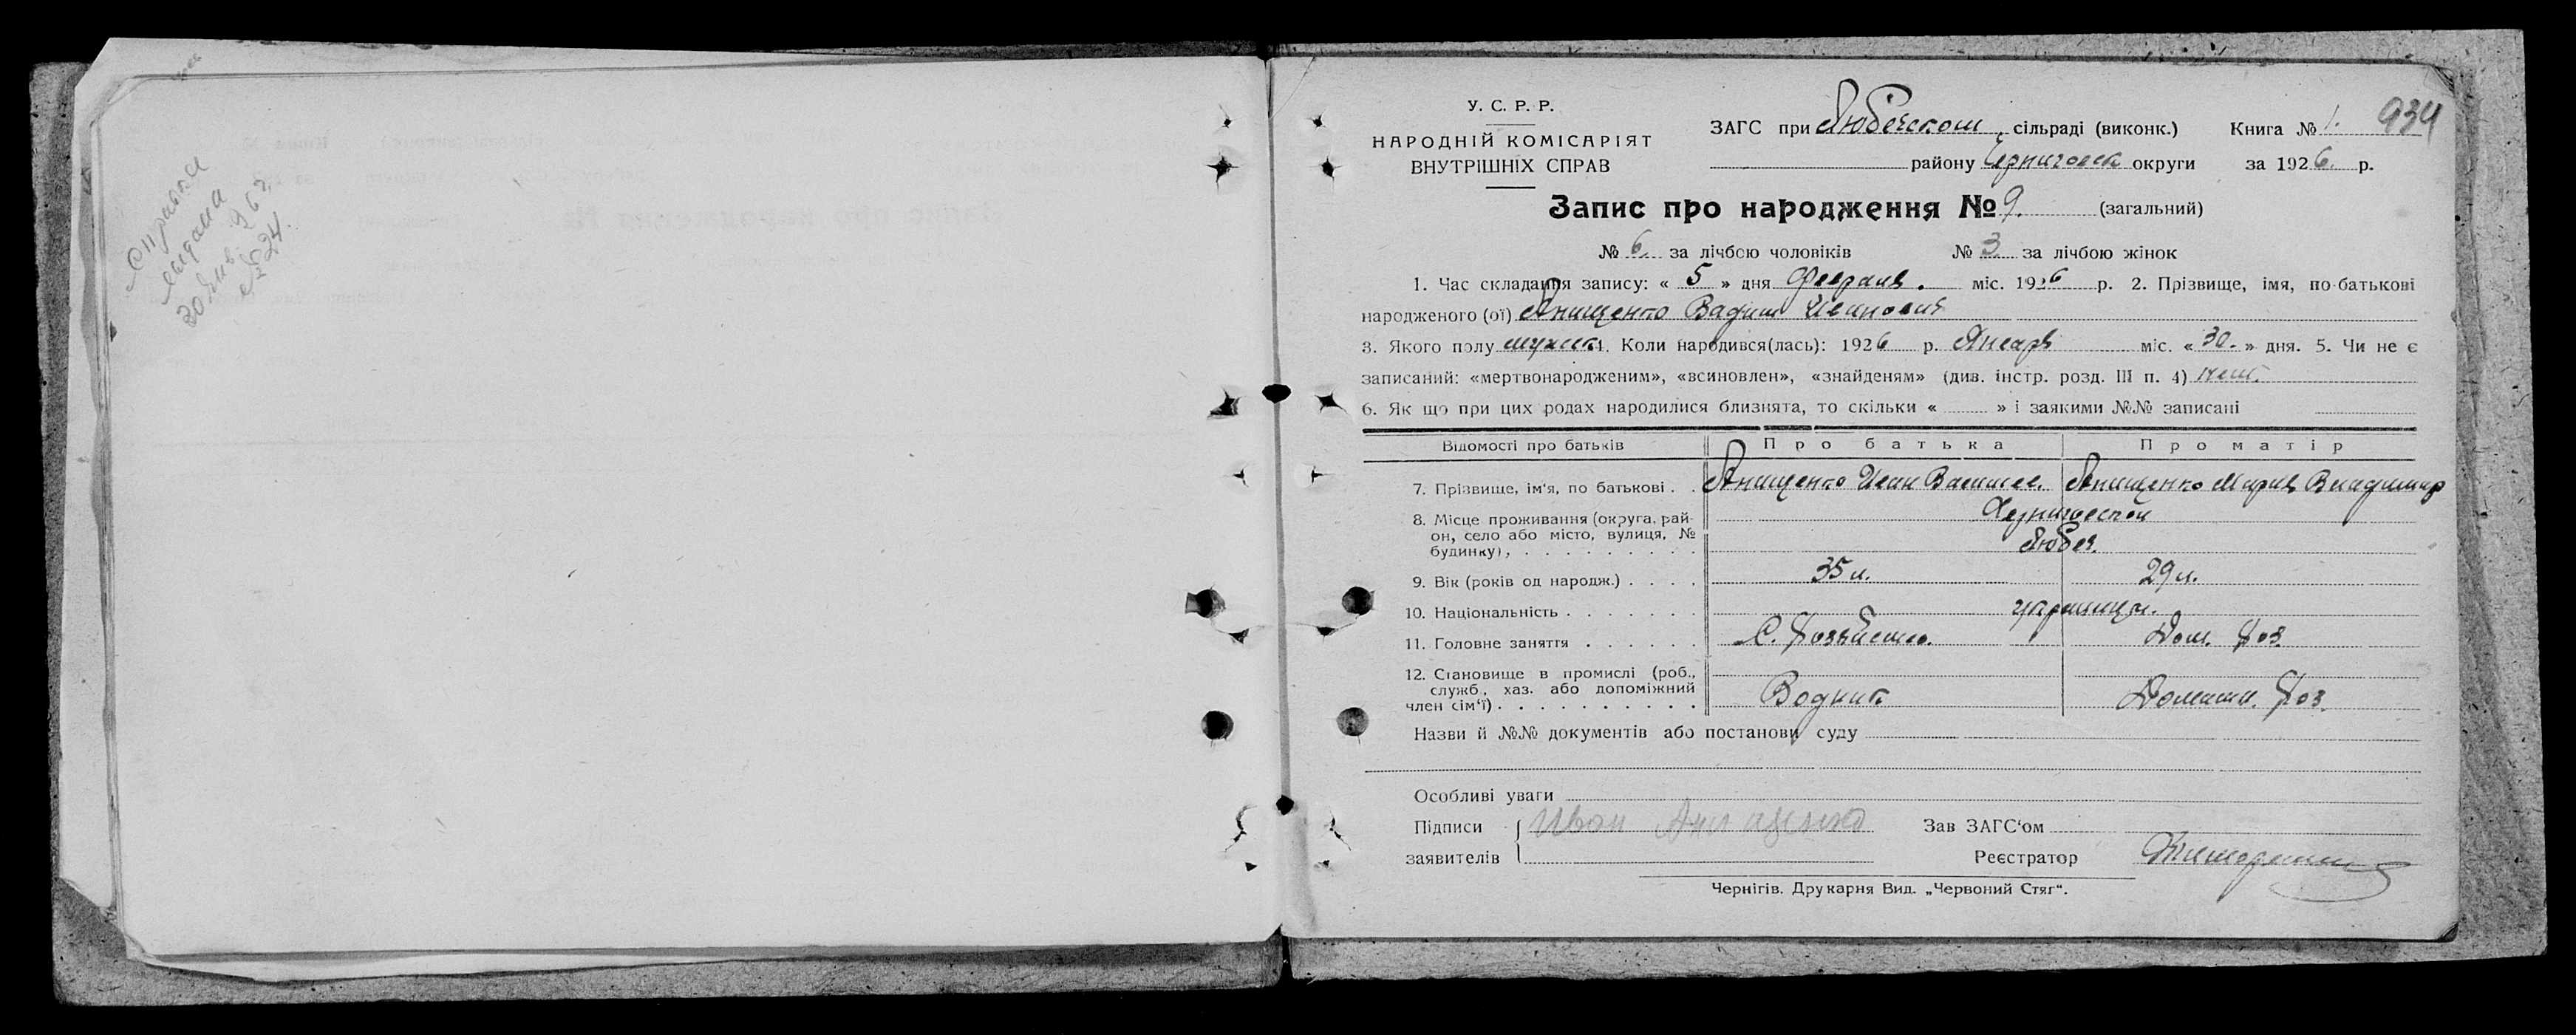 Справка
выдана
№ 24.
934
У. С. Р. Р.
НАРОДНІЙ КОМІСАРІЯТ
ВНУТРІШНІХ СПРАВ
ЗАГС при Любечском сільраді (виконк.) Книга № 1.
району Черниговск округи за 1926. р.
Запис про народження № 9. (загальний)
№ 6. за лічбою чоловіків № 3 за лічбою жінок
1. Час складання запису: « 5 » дня Февраля. міс. 1926 р. 2. Прізвище, імя, по-батькові
народженого (ої) Анищенко Вадим Иванович
3. Якого полу мужск 4. Коли народився(лась): 1926 р. Январь міс. « 30. » дня. 5. Чи не є
записаний: «мертвонародженим», «всиновлен», «знайденям» (див. інстр. розд. III п. 4) нет.
6. Як що при цих родах народилися близнята, то скільки « » і заякими №№ записані
Відомості про батьків Про батька Про матір
7. Прізвище, ім'я, по батькові . . Анищенко Иван Васильев. Анищенко Мария Владимир
8. Місце проживання (округа, рай- Черниговской
он, село або місто, вулиця, №
будинку), . . . . . . . . . Любеч.
9. Вік (років од народж.) . . . . 35 л. 29 л.
10. Національність . . . . . . . украинцы.
11. Головне заняття . . . . . . С. Хозяйство. Дом. Хоз.
12. Становище в промислі (роб.,
служб., хаз. або допоміжний
член сім'ї) . . . . . . . . . . Водник Домашн. Хоз.
Назви й №№ документів або постанови суду
Особливі уваги
Підписи Иван Анищенко Зав ЗАГС'ом
заявителів Реєстратор
Чернігів. Друкарня Вид. „Червоний Стяг".